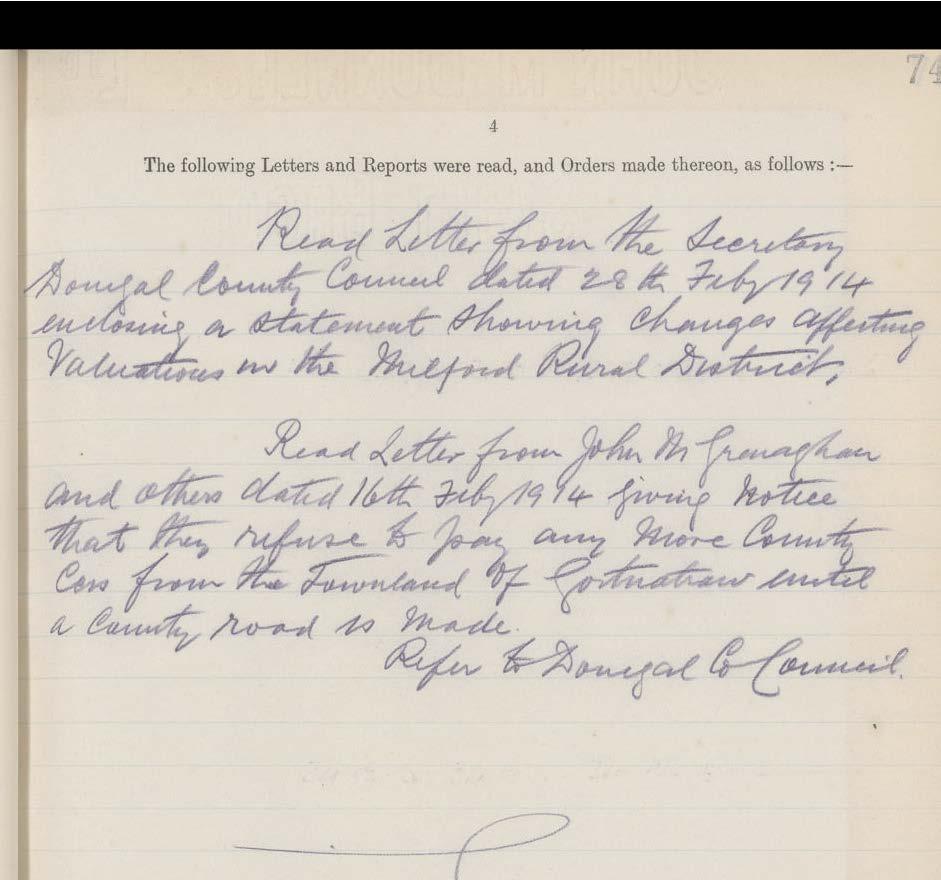 74
4
The following Letters and Reports were read, and Orders made thereon, as follows :—
Read Letter from the Secretary
Donegal County Council dated 28th Feby 1914
enclosing a statement showing changes affecting
Valuations in the Milford Rural District.
Read Letter from John McGrenaghan
and others dated 16th Feby 1914 giving Notice
that they refuse to pay any More County
Cess from the Townland Of Gortnatraw until
a County road is Made.
Refer to Donegal Co Council.